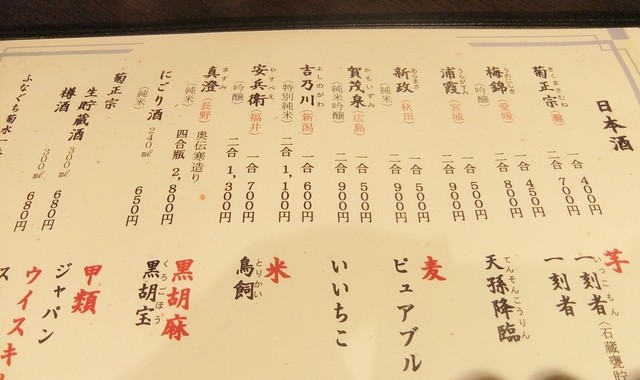 日本酒
菊正宗(灘)
きくまさむね
一合 400円
二合 700円
梅錦(愛媛)
うめにしき
(吟醸)
一合 450円
二合 800円
浦霞(宮城)
うらがすみ
一合 500円
二合 900円
新政(秋田)
あらまさ
(純米)
一合 500円
二合 900円
賀茂泉(広島)
かもいずみ
(純米吟醸)
一合 500円
二合 900円
吉乃川(新潟)
よしのがわ
(特別純米)
一合 600円
二合 1,100円
安兵衛(福井)
やすべえ
(吟醸)
一合 700円
二合 1,300円
真澄(長野)
ますみ
(純米)
奥伝寒造り
四合瓶 2,800円
にごり酒 240㎖ 650円
(純米)
菊正宗
生貯蔵酒 300㎖ 680円
樽酒 300㎖ 680円
ふなぐち菊水一
芋
一刻者(石蔵甕貯
いっこもん
一刻者
天孫降臨
てんそんこうりん
麦
ピュアブル
いいちこ
米
鳥飼
とりかい
黒胡麻
黒胡宝
くろごほう
甲類
ジャパン
ウイスキ